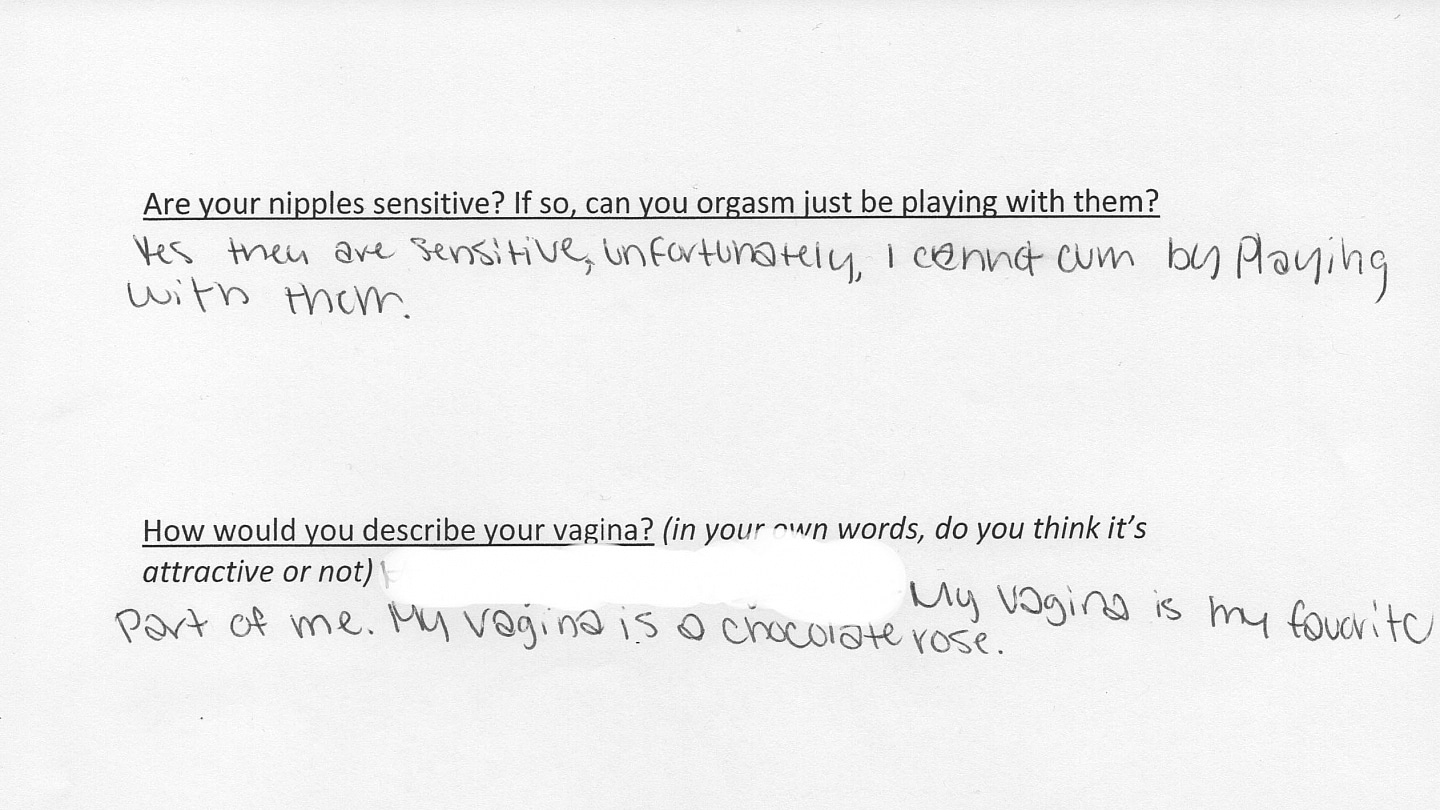 Are your nipples sensitive? If so, can you orgasm just be playing with them?
Yes they are sensitive, unfortunately, I cannot cum by playing
with them.
How would you describe your vagina? (in your own words, do you think it's
attractive or not)
My vagina is my favorite
part of me. My vagina is a chocolate rose.